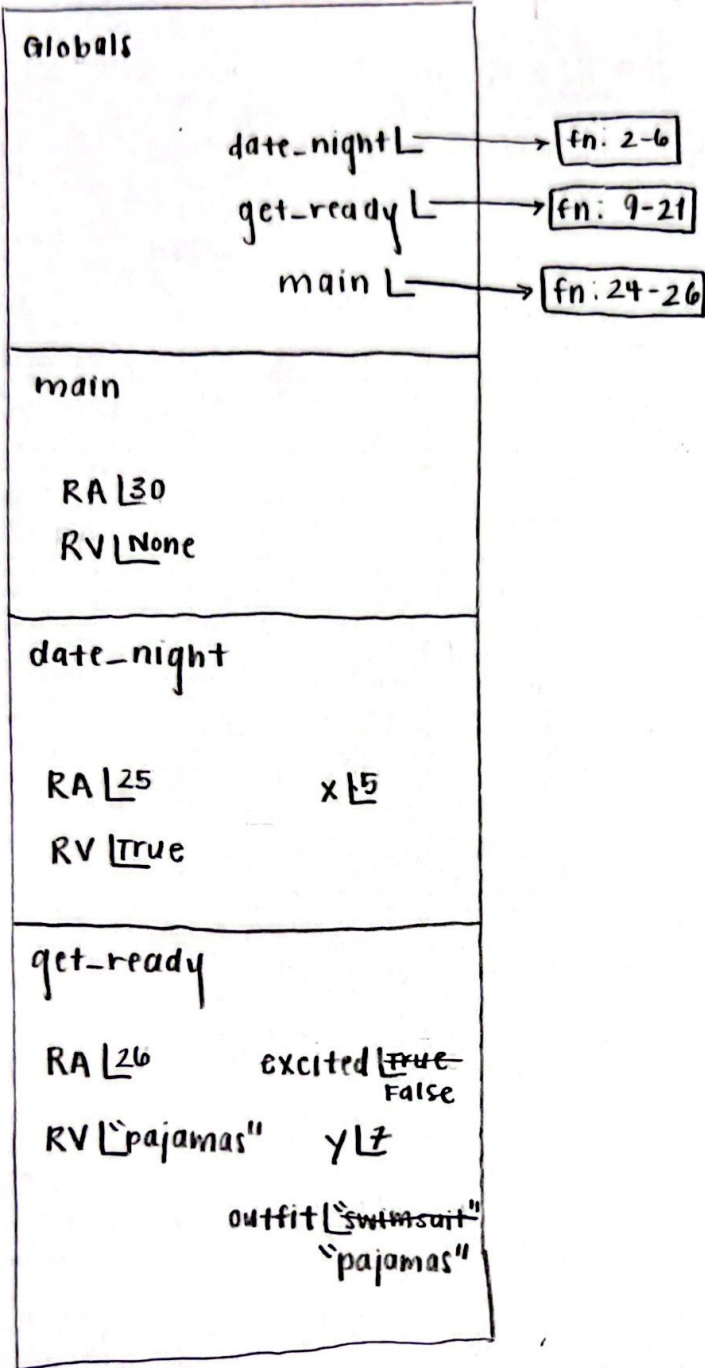 Globals
date_night fn: 2-6
get_ready fn: 9-21
main fn: 24-26
main
RA 30
RV None
date_night
RA 25 x 5
RV True
get_ready
RA 26 excited True
False
RV "pajamas" y 7
outfit "swimsuit"
"pajamas"